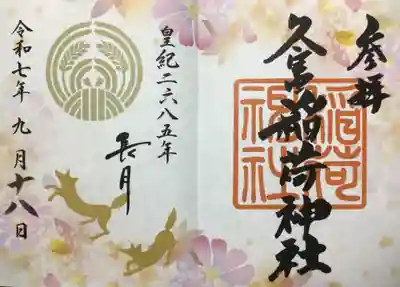 参拝
久富稲荷神社
稲荷神社
皇紀二六八五年
長月
令和七年 九月 十八日